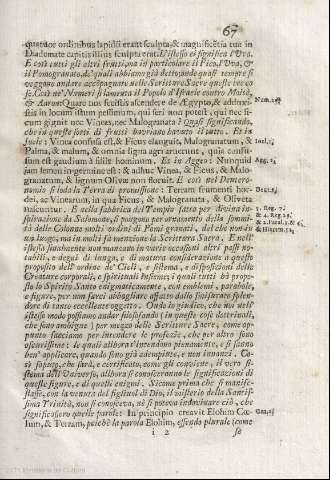 67
quatuor ordinibus lapidū erant sculpta, & magnificētia eius in
Diademate capitis illius sculpta erat. L'istesso si significa l'Vva.
E così tutti gli altri frutti, ma in particolare il Fico, l'Vva, &
il Pomogranato, de' quali abbiamo già detto, onde quasi sempre si
veggono andare accoppagnate nelle Scritture Sacre queste tre co-
se. Così ne' Numeri si lamenta il Popolo d'Israele contro Moisè,
& Aaron: Quare nos fecistis ascendere de Ægypto, & adduxi-
stis in locum istum pessimum, qui seri non potest, qui nec fi-
cum gignit nec Vineas, nec Malogranata? Quasi significando,
che in queste sorti di frutti haveriano havuto il tutto. Et in
Ioele: Vinea confusa est, & Ficus elanguit, Malogranatum, &
Palma, & malum, & omnia ligna agri aruerunt, quia confu-
sum est gaudium à filiis hominum. Et in Aggeo: Nunquid
iam semen in germine est: & adhuc Vinea, & Ficus, & Malo-
granatum, & lignum Olivæ non floruit. E così nel Deutero-
nomio si loda la Terra di promissione: Terram frumenti hor-
dei, ac Vinearum, in qua Ficus, & Malogranata, & Oliveta
nascuntur. E nella fabbrica del Tempio fatta per divina in-
spiratione da Salomone, si pongono per ornamento della sommi-
tà delle Colonne molti ordini di Pomi granati, del che non in
un luogo, ma in molti fà menzione la Scrittura Sacra. E nell'
istessa similmente non mancano in varie occasioni altri passi no-
tabili, e degni di lunga, e di matura considerazione a questo
proposito dell' ordine de' Cieli, e sistema, e disposizioni delle
Creature corporali, e spirituali Insieme; i quali tutti hà propo-
sto lo Spirito Santo enigmaticamente, con emblemi, parabole,
e figure, per non farci abbagliare affatto dallo smisurato splendo-
re di tanto eccellente oggetto. Onde io giudico, che noi nell'
istesso modo possiamo andar filosofando (in queste cose dottrinali,
che sono ambigue) per mezzo delle Scritture Sacre, come op-
punto facciamo per intendere le profezie, che per altro sono
oscurissime: le quali allhora s'intendono pienamente, e si hanno
ben' applicare, quando sono adempiute, e non innanzi. Co-
sì saputo, che sarà, e certificato, come gli conviene, il vero si-
stema dell' Vniverso, allhora si conosceranno le significazioni di
queste figure, e di questi enigmi. Sicome prima che si manife-
stasse, con la venuta del figliuol di Dio, il misterio della Santis-
sima Trinità, non si conosceva, nè si poteva indovinare ciò, che
significassero quelle parole: In principio creavit Elohim Cœ-
lum, & Terram, poichè la parola Elohim, essendo plurale (come
i 2 se
Ioel. 1.
Agg. 2.
3. Reg. 7.